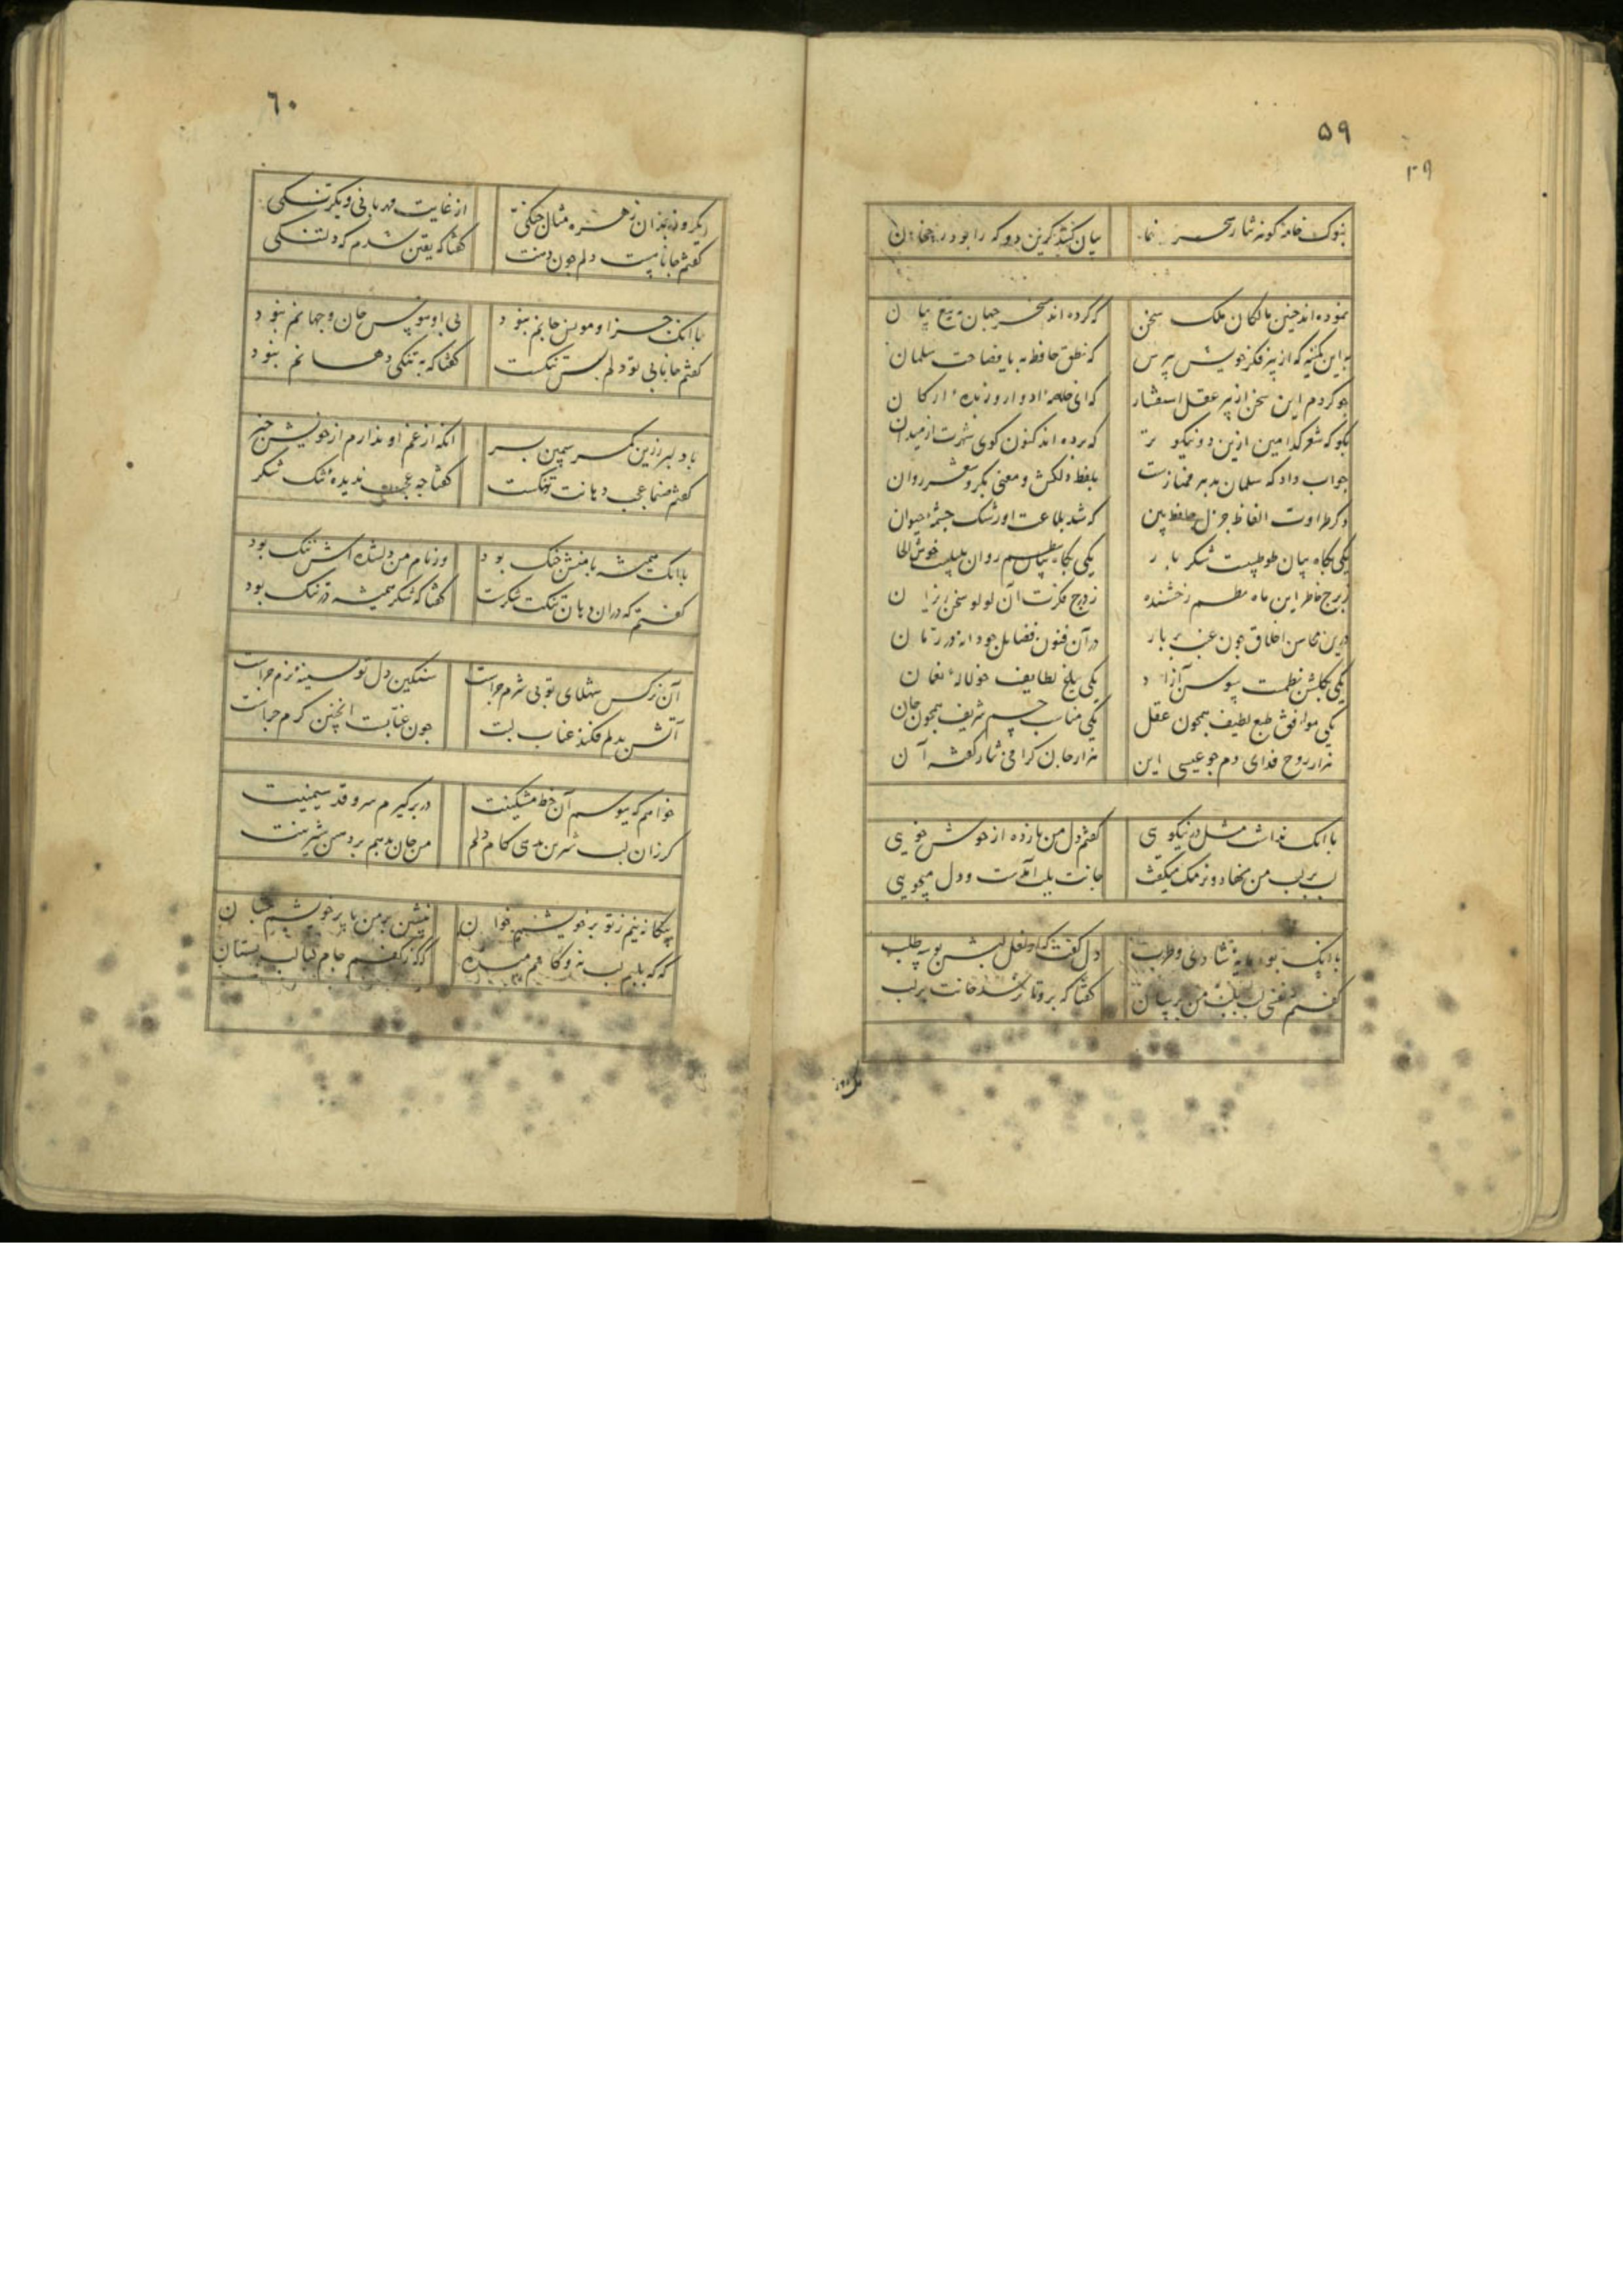 ۵۹
۳۹
بنوک خامه گوهر نثار سحر نما
بیان کنند کزین دو که را بود رجحان
نموده اند چنین مالکان ملک سخن
که کرده اند مسخر جهان به تیغ بیان
به این کمینه که از پیر فکر خویش بپرس
که نطق حافظ به یا فصاحت سلمان
چو کردم این سخن از پیر عقل استفسار
که ای خلاصه ادوار و زبده ارکان
بگو که شعر کدامین ازین دو نیکوتر
که برده اند کنون گوی شهرت از میدان
جواب داد که سلمان بدهر ممتازست
بلفظ دلکش و معنی بکر و شعر روان
دگر طراوت الفاظ جزل حافظ بین
که شد بلاغت او رشک چشمه حیوان
یکی بگاه بیان طوطیست شکر بار
یکی بگاه نظم روان بلبلیست خوش الحان
ز برج خاطر این ماه نظم رخشنده
ز درج فکرت آن لولو سخن ریزان
درین محاسن اخلاق چون عنب بر بار
در آن فنون فضایل چو دانه در رمان
یکی بگلشن نظمست سوسن آزاد
یکی بباغ لطایف چو لاله نعمان
یکی موافق طبع لطیف همچون عقل
یکی مناسب جسم شریف همچون جان
هزار روح فدای دم چو عیسی این
هزار جان گرامی نثار گفته آن
با آنک نداشت مثل در نیکویی
گفتم دل من باز ده از خوش خویی
لب بر لب من نهاد و نرمک میگفت
جانت بلب آمدست و دل میجویی
با آنک بود مایه شادی و طرب
دل گفت که از لعل لبش بوسه طلب
گفتم نفسی لب بلب من برسان
گفتا که برو تا رسد جانت بلب
٦٠
یکروز بدان زهره مثال چنگی
از غایت مهربانی و یکرنگی
گفتم جانا چیست دلم چون دهنت
گفتا که یقین شدم که دلتنگی
با آنک جز او مونس جانم نبود
بی او هوس جان و جهانم نبود
گفتم جانا بی تو دلم بس تنگست
گفتا که به تنگی دهانم نبود
با دلبر زرین کمر سیمین بر
آنکه از غم او ندارم از خویش خبر
گفتم صنما عجب دهانت تنگست
گفتا چه عجب ندیده تنگ شکر
با آنک همیشه با منش جنگ بود
وز نام من دلشده اش ننگ بود
گفتم که در آن دهان تنگت شکرست
گفتا که شکر همیشه در تنگ بود
آن نرگس شهلای تو بی شرم چراست
سنگین دل تو سینه نرم چراست
آتش بدلم فکند عناب لبت
چون عنابت اینچنین گرم چراست
خواهم که ببوسم آن خط مشکینت
در بر گیرم سرو قد سیمینت
گر زان لب شیرین بدهی کام دلم
من جان بدهم بر دهن شیرینت
بیگانه نیم ز تو بر خویشم خوان
بنشین بر من یا بر خویشم بنشان
گه گه بلبم لب نه و کامم میده
گه گه ز کفم جام می ناب بستان